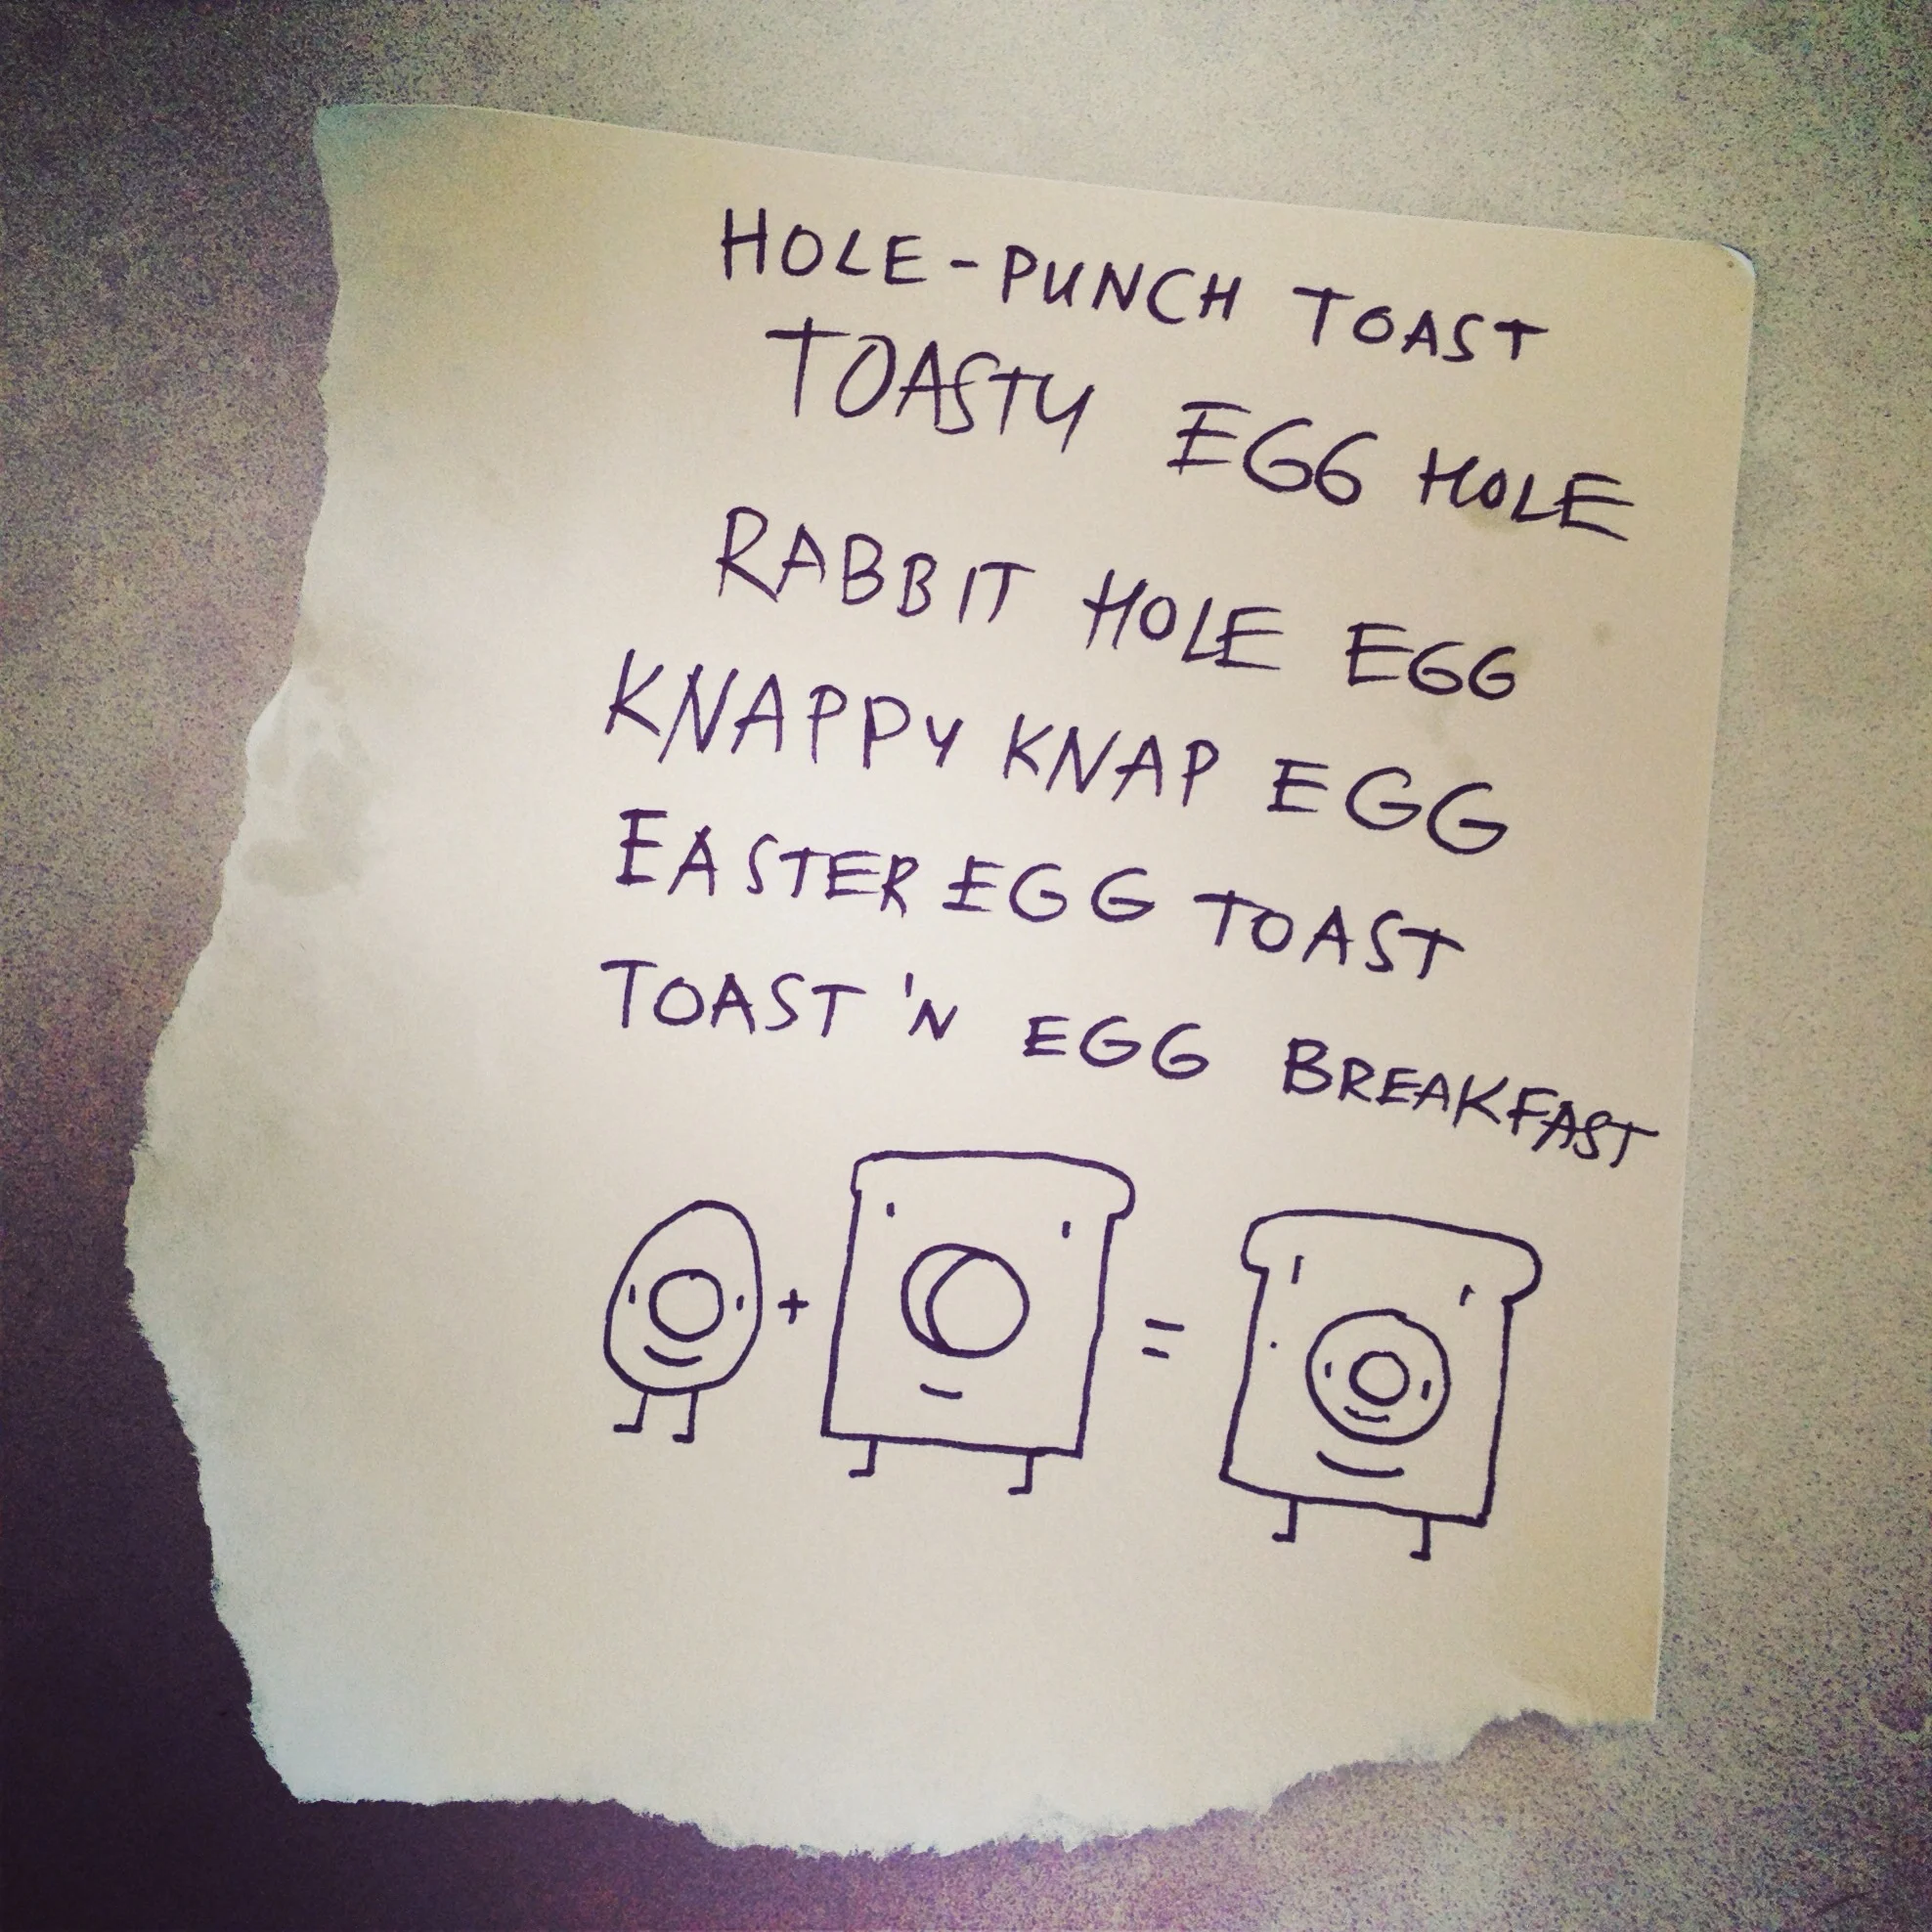 HOLE-PUNCH TOAST
TOASTY EGG HOLE
RABBIT HOLE EGG
KNAPPY KNAP EGG
EASTER EGG TOAST
TOAST 'N EGG BREAKFAST
+ =